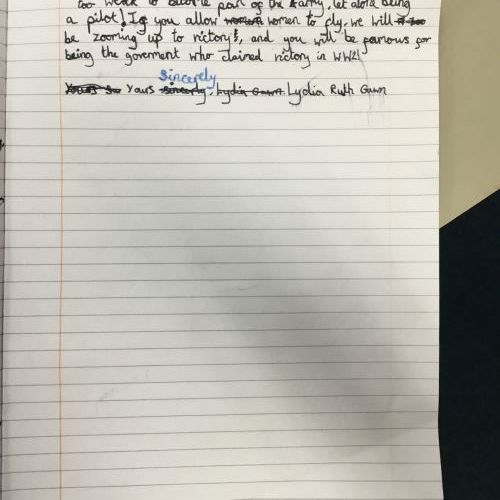 too weak to become part of the army, let alone being
a pilot! If you allow women to fly, we will
be 'zooming up to victory!', and you will be famous for
being the goverment who claimed victory in WW2!
Sincerely
Yours sincerly, Lydia Gawn Lydia Ruth Gawn